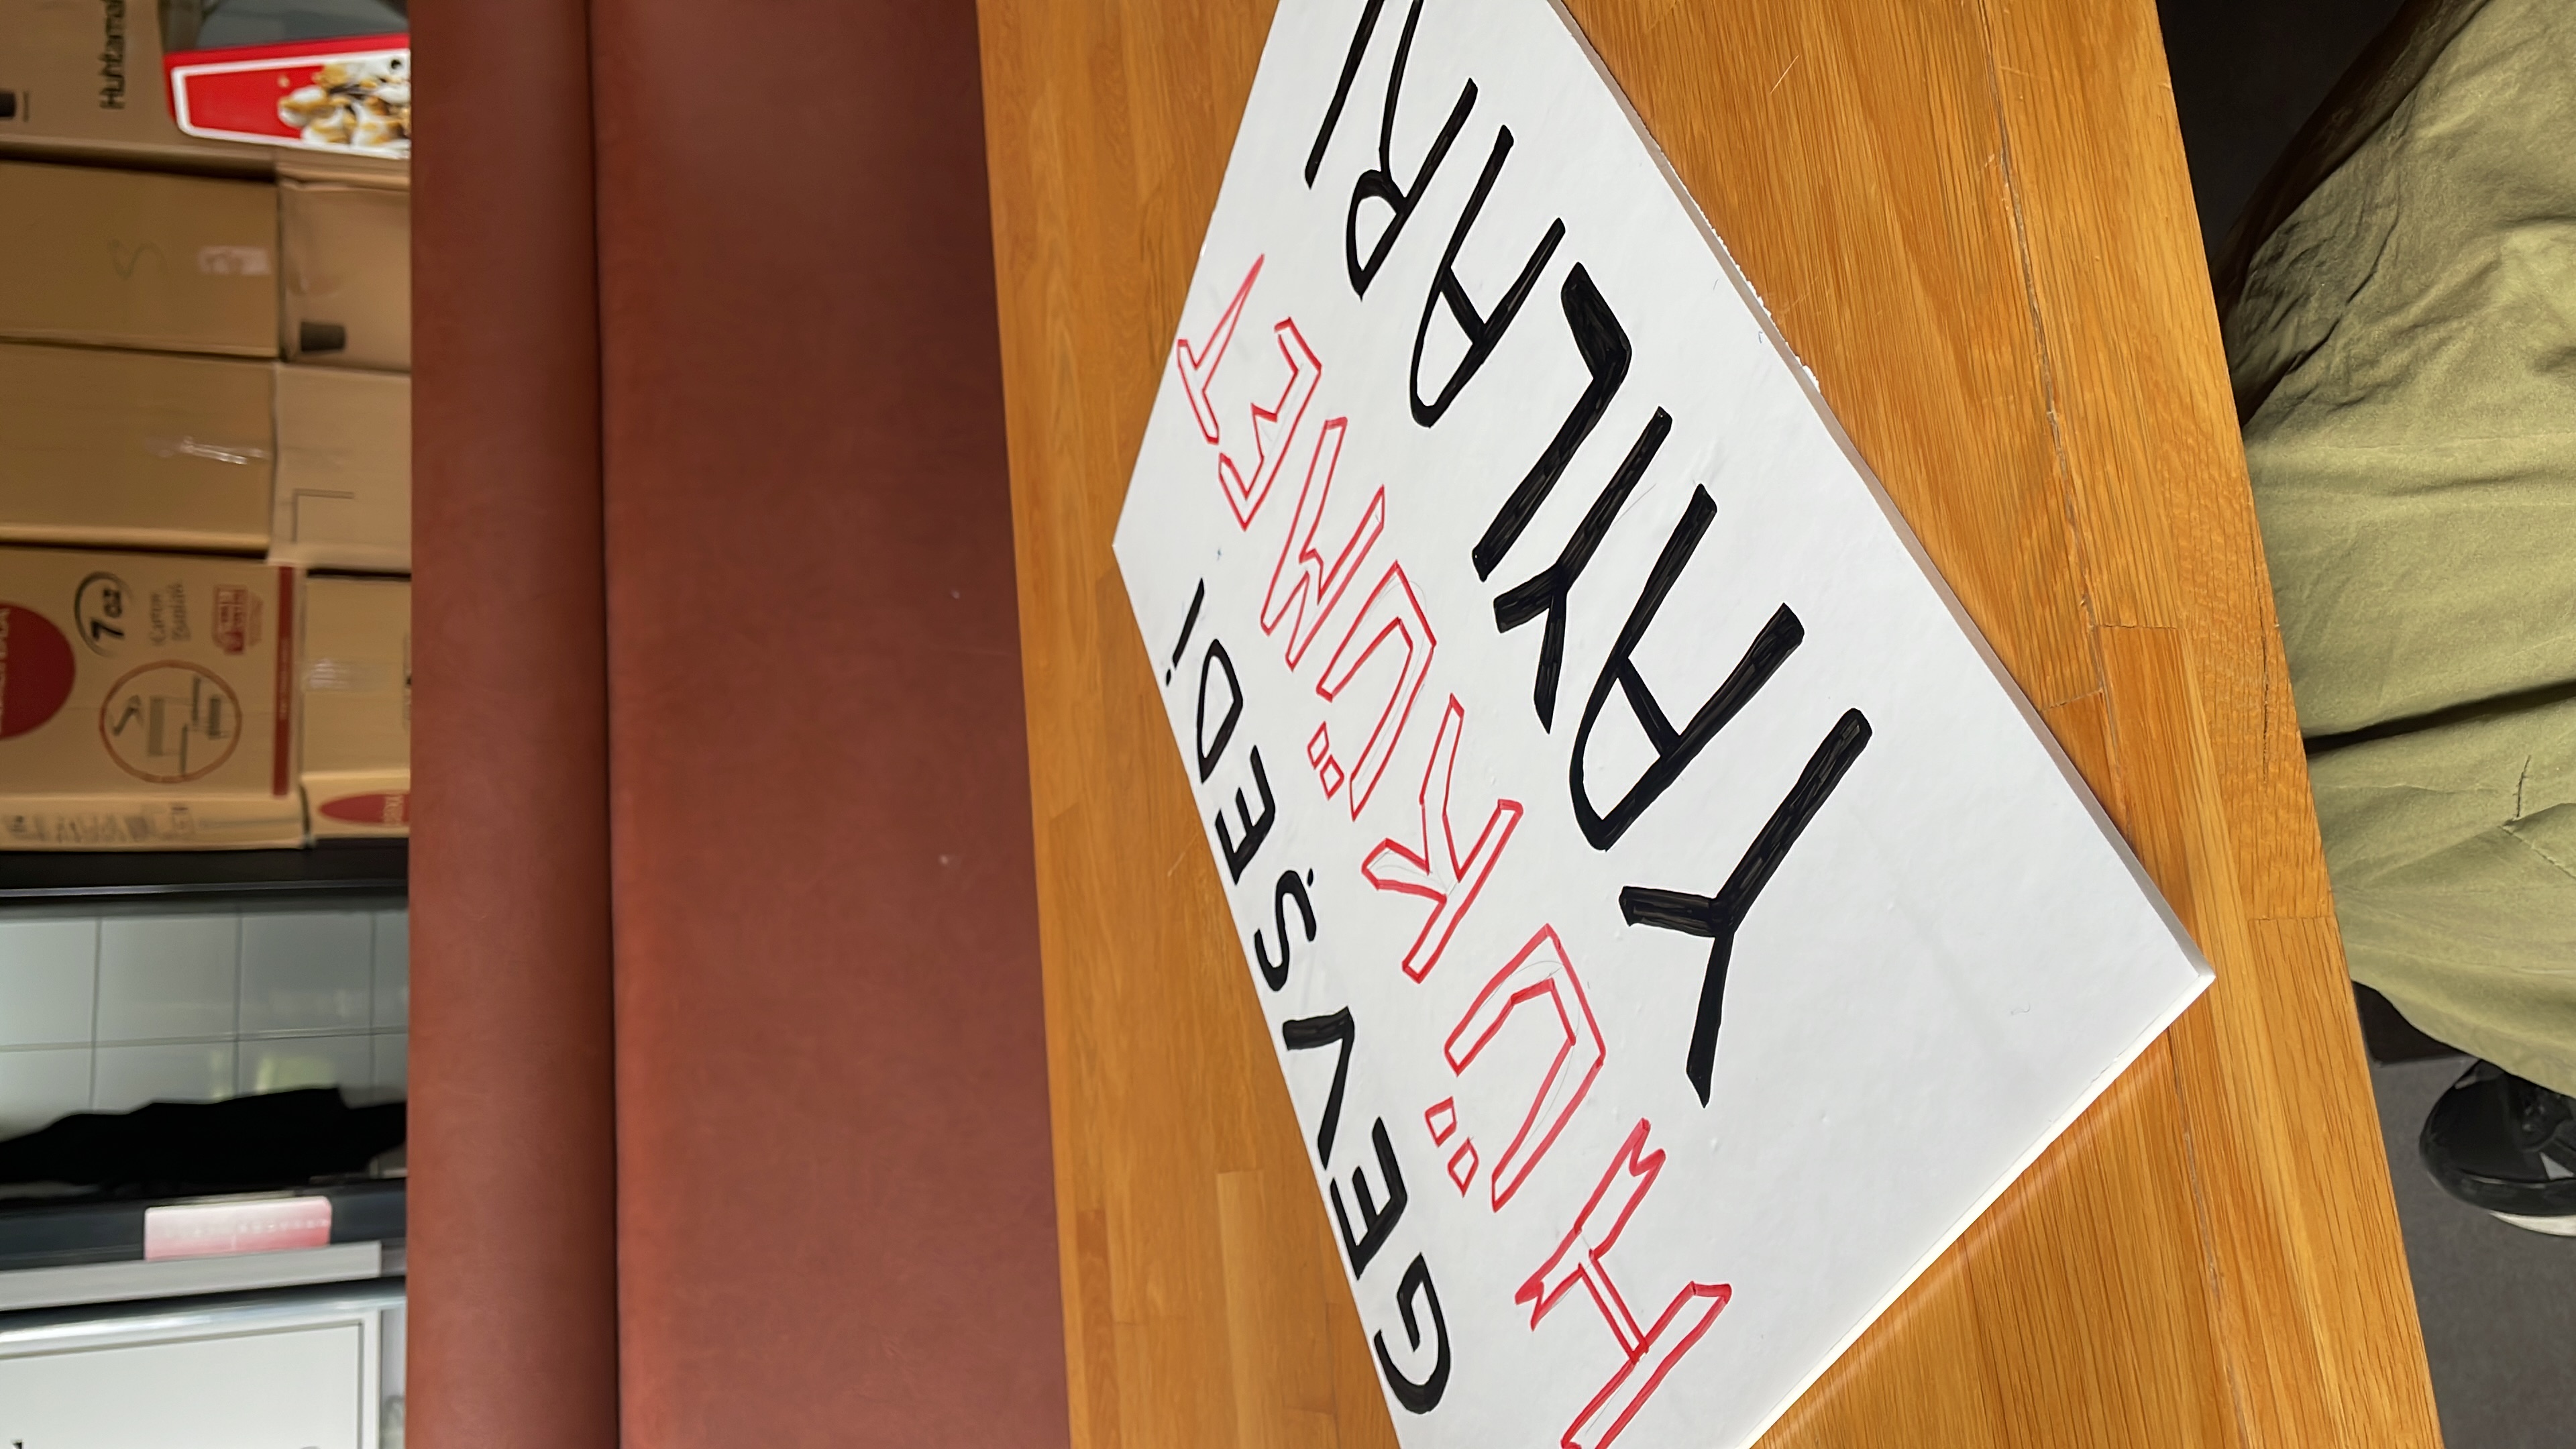 7 oz
Karton
Bardak
Huhtama
GEVŞEDİ
HÜKÜMET
YAYLARI